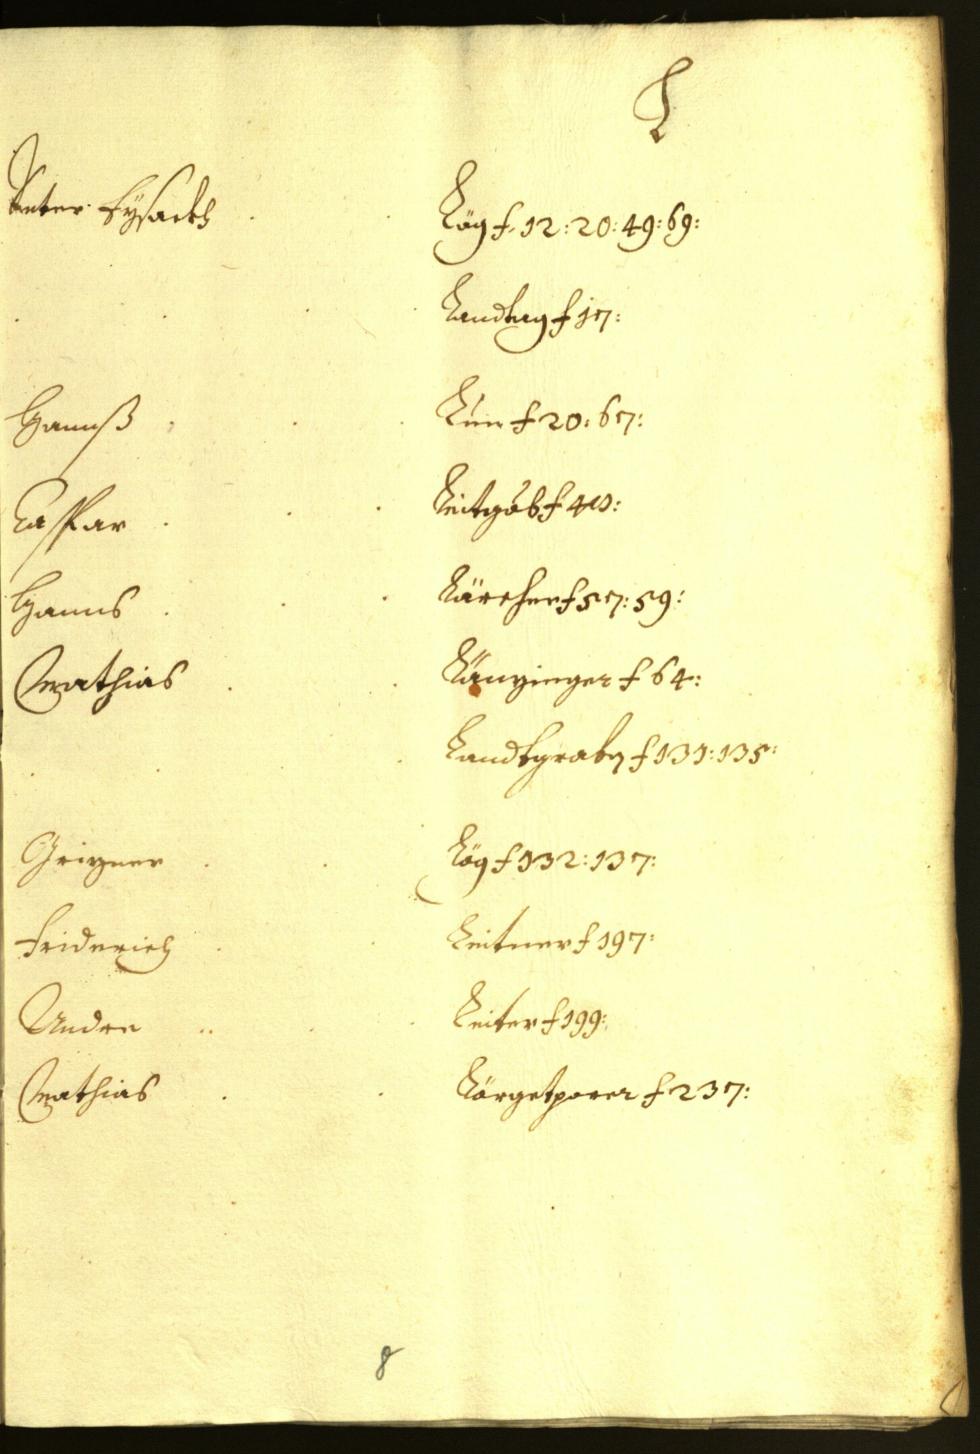 L
Peter Eÿsackh Lög f. 12: 20: 49: 69:
Landtag f 17:
Hannß Lun f 20: 67:
Caspar Leitgöb f 40:
Hanns Lärcher f 57: 59:
Mathias Länzinger f 64:
Landtgraben f 131: 135:
Grizner Lög f 132: 137:
Friderich Leitner f 197:
Andre Leiter f 199:
Mathias Lörgetporer f 237:
8